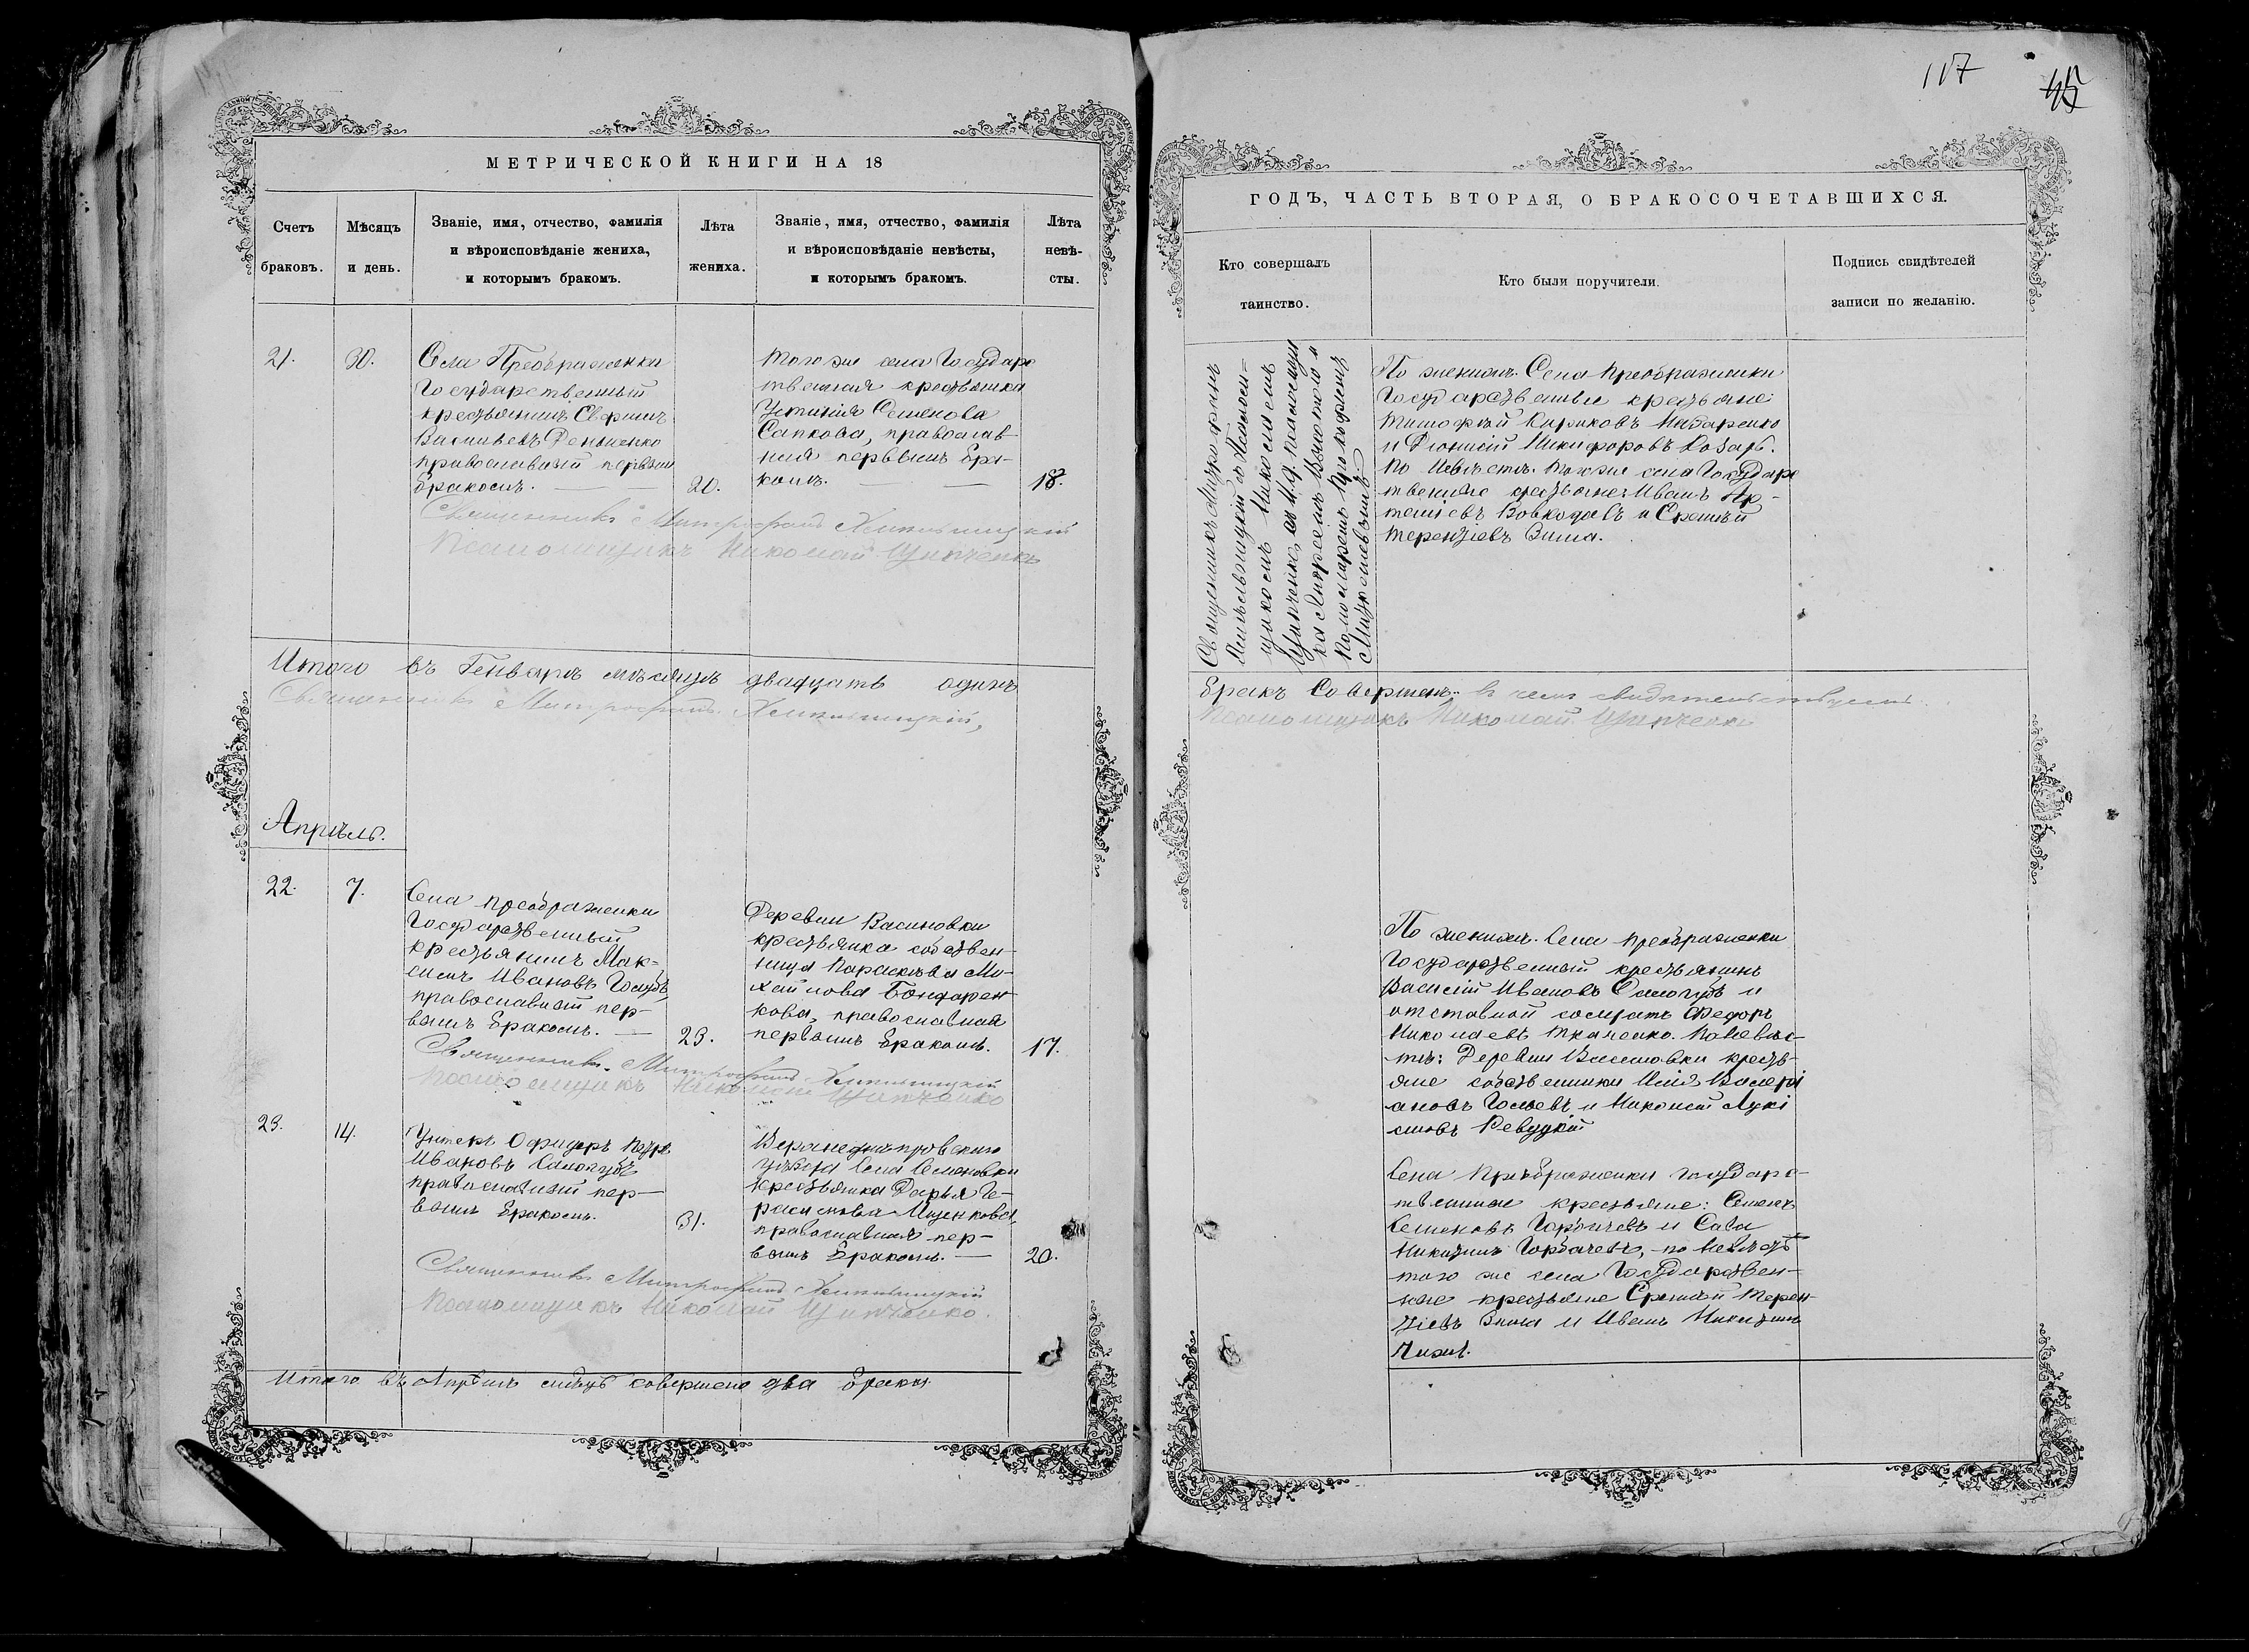 117
45
МЕТРИЧЕСКОЙ КНИГИ НА 18
Счетъ браковъ.
Мѣсяцъ и день.
Званіе, имя, отчество, фамилія
и вѣроисповѣданіе жениха,
и которымъ бракомъ.
Лѣта жениха.
Званіе, имя, отчество, фамилія
и вѣроисповѣданіе невѣсты,
и которымъ бракомъ.
Лѣта невѣ-
сты.
21.
30.
Села Преображенки
Государственный
крестьянинъ
Васильевъ
православный первымъ
бракомъ.
20.
того же села Государс
твенная крестьянка
Устинія Семенова
Сапкова, православ-
ная первымъ бра-
комъ.
18.
Священникъ Митрофанъ Хмельницкій
Псаломщикъ Николай Ципченко
Итого въ Генварѣ мѣсяцѣ двадцать одинъ
Священникъ Митрофанъ Хмельницкій,
Апрѣль.
22.
7.
Села Преображенки
Государственный
крестьянинъ Мак-
симъ Ивановъ Голубъ,
православный пер-
вымъ бракомъ.
23.
Деревни Васиновки
крестьянка собствен-
ница Параскева Ми-
хайлова Бондарен-
кова, православная
первымъ бракомъ.
17.
Священникъ Митрофанъ Хмельницкій
Псаломщикъ Николай Ципченко
23.
14.
Унтеръ Офицеръ Петръ
Ивановъ Самогубъ
православный пер-
вымъ бракомъ.
31.
Верхнеднѣпровскаго
уѣзда Села Семеновки
крестьянка Дарья Ге-
расимова Мизенкова,
православная пер-
вымъ бракомъ.
20.
Священникъ Митрофанъ Хмельницкій
Псаломщикъ Николай Ципченко.
Итого въ Апрѣлѣ мѣсяцѣ совершено два брака
ГОДЪ, ЧАСТЬ ВТОРАЯ, О БРАКОСОЧЕТАВШИХСЯ.
Кто совершалъ
таинство.
Кто были поручители.
Подпись свидѣтелей
записи по желанію.
Священникъ Митрофанъ
Хмельницкій съ Псалом-
щикомъ Николаемъ
Ципченко, и
Пономаремъ Прокофіемъ
По женихѣ: Села Преображенки
Государственные крестьяне:
Тимофей Кириковъ Назаренко
и Діонисій Никифоровъ Козарь.
По невѣстѣ: того же села Государс
твенные крестьяне: Иванъ Ар-
темьевъ Вовкодавъ и Еремѣй
Терентіевъ Зима.
бракъ совершенъ; въ чемъ свидѣтельствуемъ
Псаломщикъ Николай Ципченко
По женихѣ: Села Преображенки
Государственный крестьянинъ
Василій Ивановъ Самогубъ и
отставной солдатъ Федоръ
Николаевъ Ткаченко. По Невѣс-
тѣ: Деревни Васиновки кресть-
яне собственники Илія Валері
ановъ Голевъ и Николай Лукі
ановъ Ревуцкій
Села Преображенки Государс-
твенные крестьяне: Семенъ
Семеновъ Горбачевъ и Сава
Никитинъ Горбачевъ, по Невѣстѣ
того же села Государствен-
ные крестьяне Еремѣй Терен-
тіевъ Зима и Иванъ Никитинъ